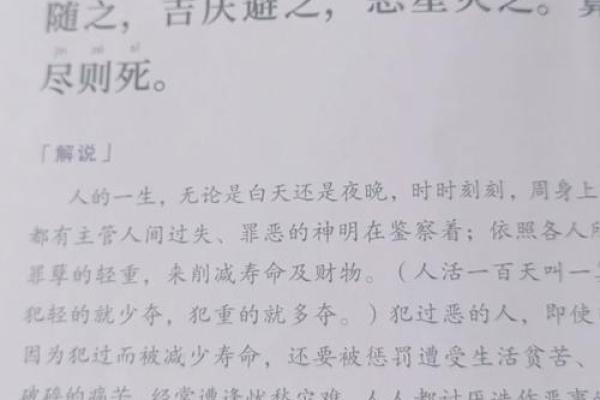 随之，吉庆避之，恶星灾之。算
jìn zé sǐ
尽则死。
「解说」
人的一生，无论是白天还是夜晚，时时刻刻，周身上
都有主管人间过失、罪恶的神明在鉴察着；依照各人所
罪孽的轻重，来削减寿命及财物。（人活一百天叫一算
犯轻的就少夺，犯重的就多夺。）犯过恶的人，即使
因为犯过而被减少寿命，还要被惩罚遭受生活贫苦、
破碎的痛苦，经常遭逢忧愁灾难，人人都讨厌造作恶事